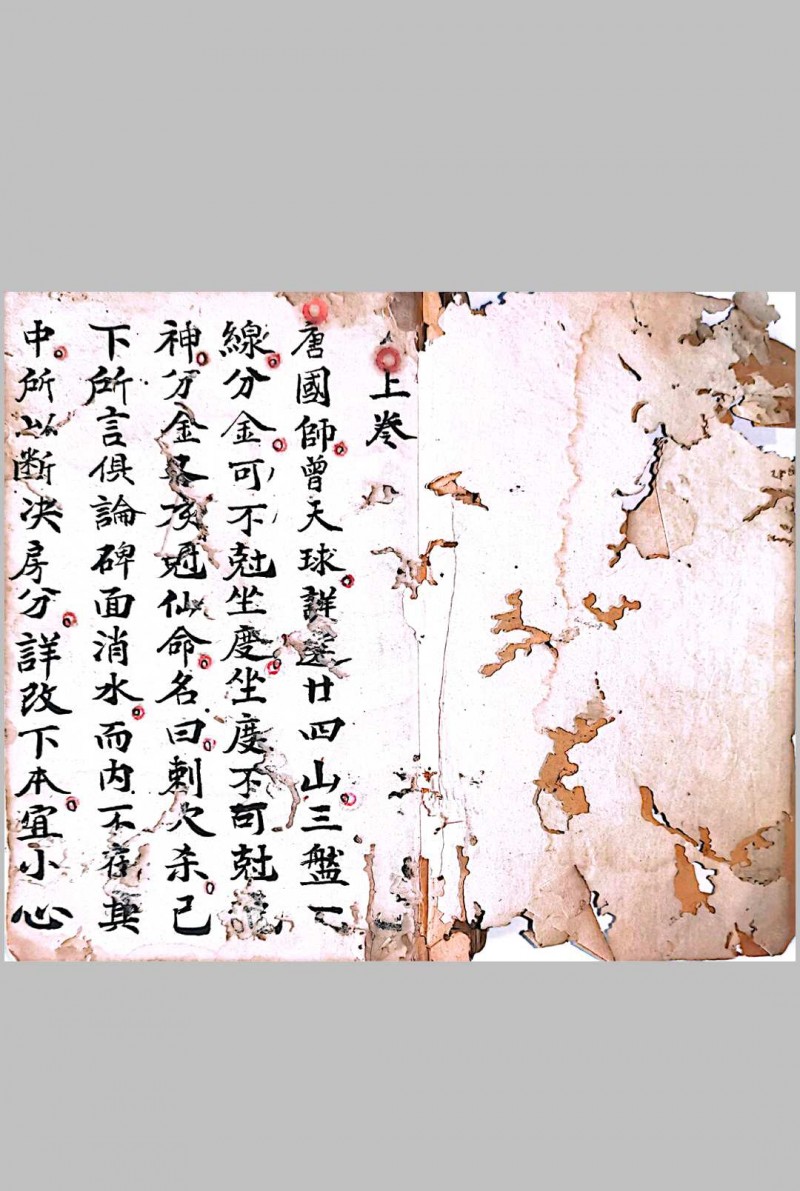 上卷
唐國師曾天球詳選廿四山三盤一
線分金可不尅坐度坐度不可尅
神分金名仙命名曰刺穴杀已
下所言俱論碑面消水而内不在其
中所以断决房分詳改下本宜小心